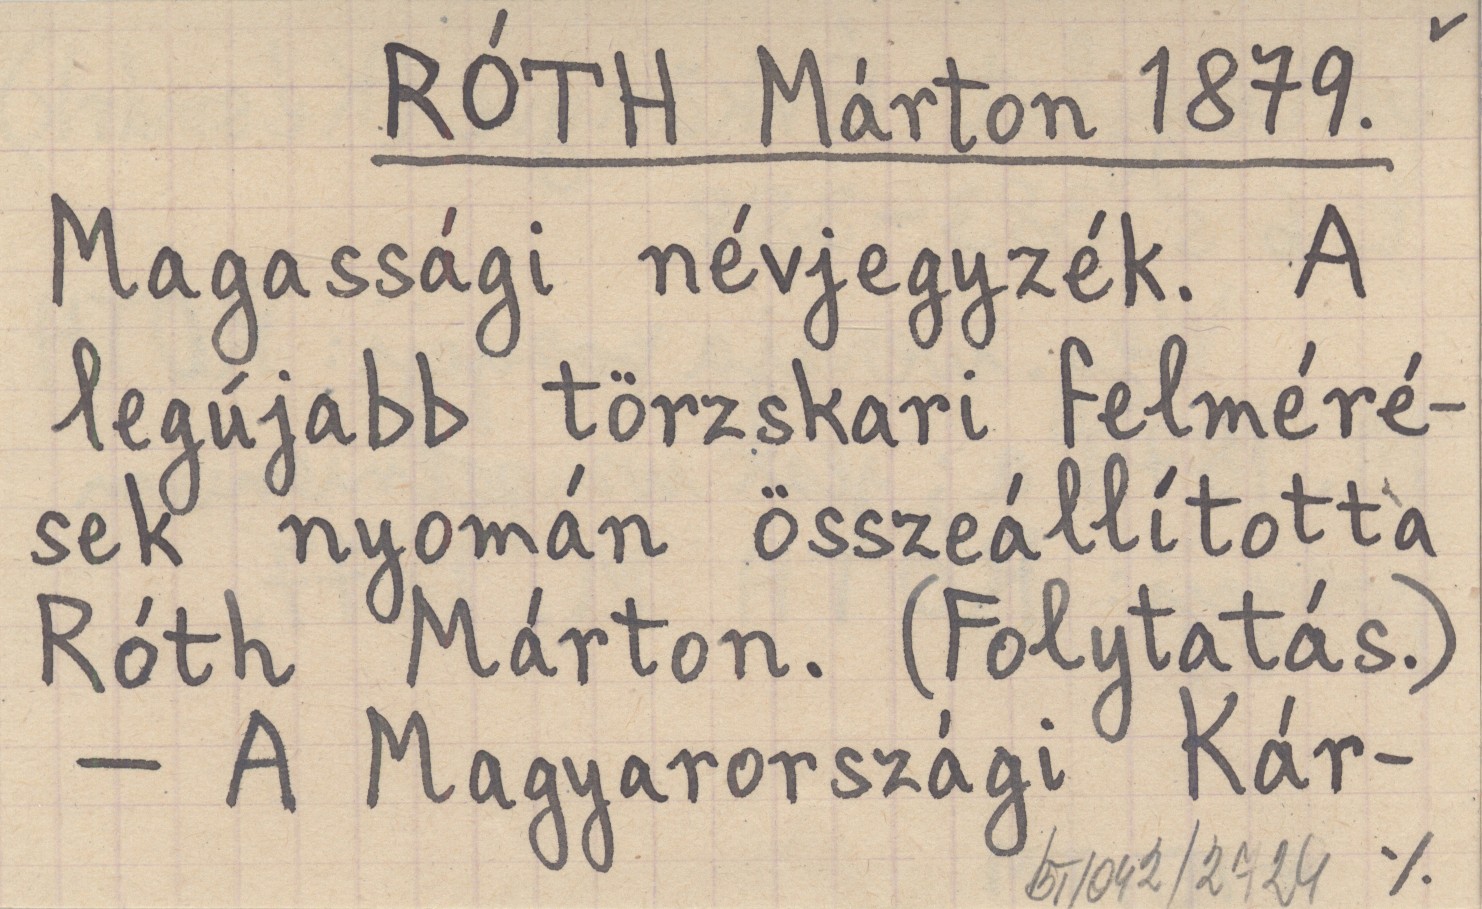 RÓTH Márton 1879.
Magassági névjegyzék. A
legújabb törzskari felméré-
sek nyomán összeállította
Róth Márton. (Folytatás.)
— A Magyarországi Kár-
·/.